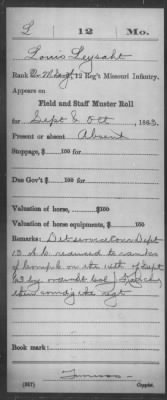 L 12 Mo.
Louis Leysaht
Rank , 12 Reg't Missouri Infantry.
Appears on
Field and Staff Muster Roll
for Sept & Oct , 1863.
Present or absent Absent
Stoppage, $ 100 for
Due Gov't $ 100 for
Valuation of horse, $ 100
Valuation of horse equipments, $ 100
Remarks: Det service Conv Dept
13 A.C. reduced to ranks
of Comp on the 14th of Sept
63 by
the regt
Book mark:
(357) Copyist.